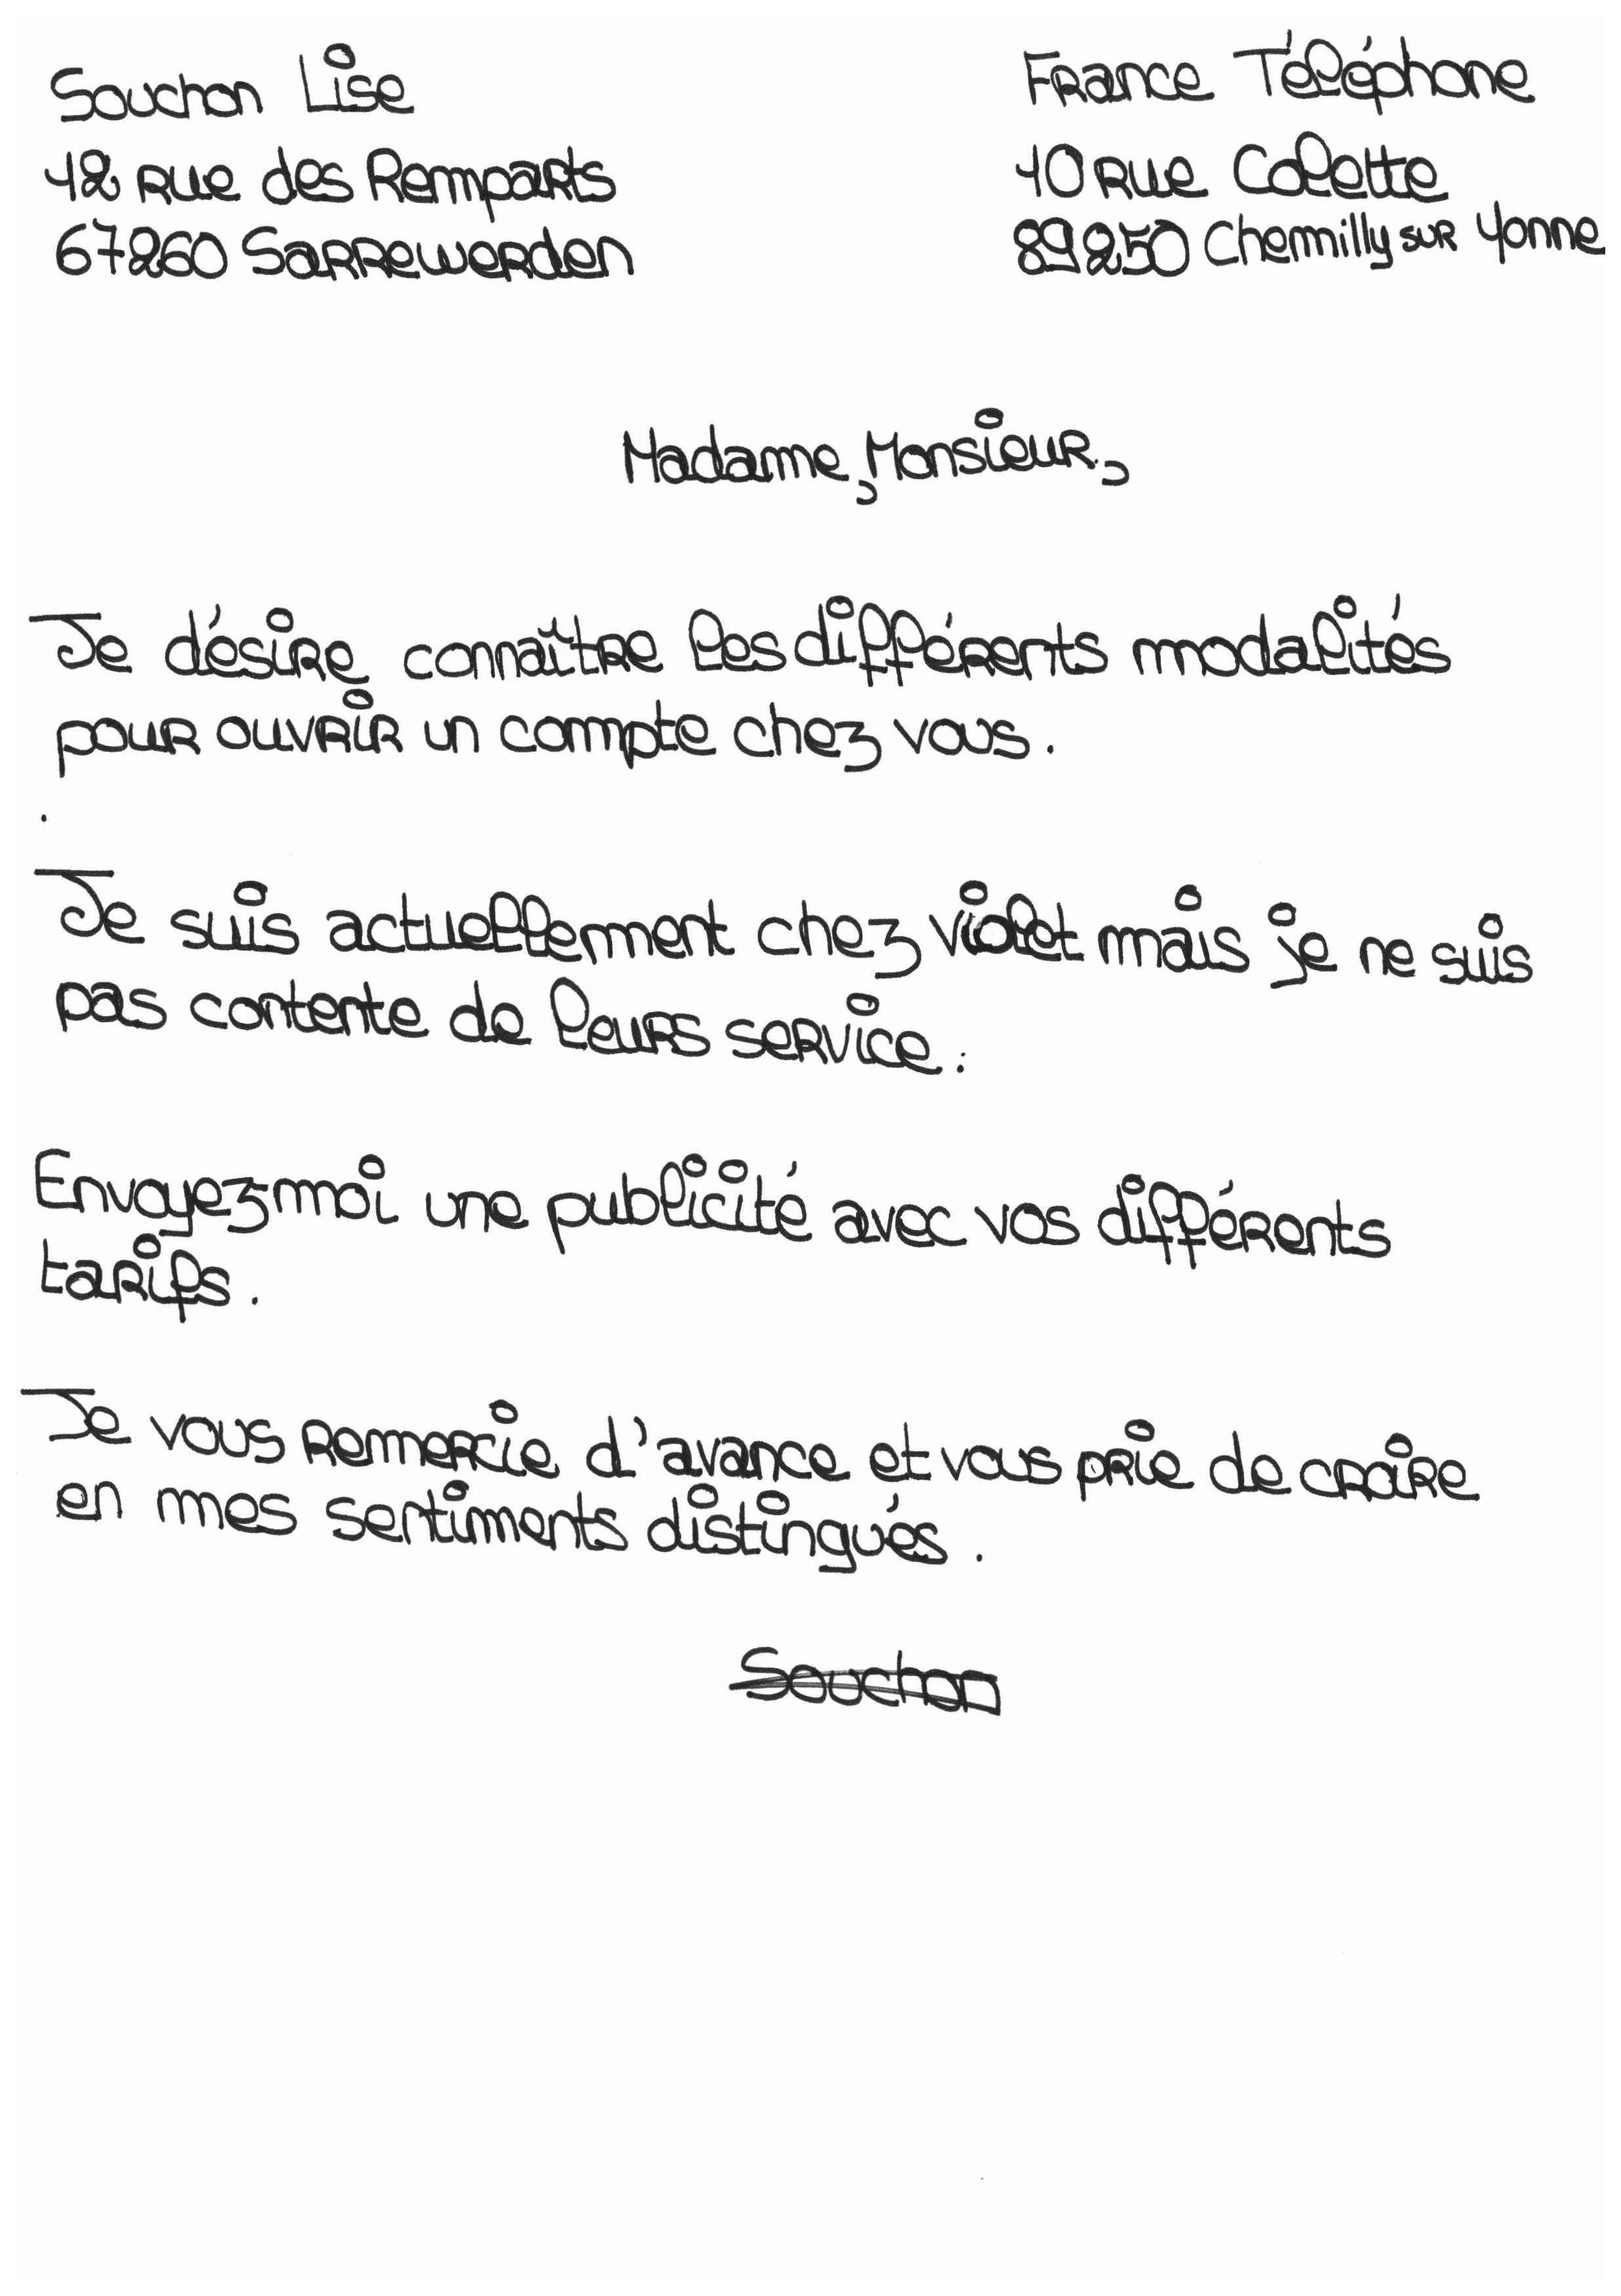 Souchon Lise
12 rue des Remparts
67260 Sarrewerden
France Téléphone
10 rue Colette
89250 Chemilly sur Yonne
Madame, Monsieur,
Je désire connaître les différents modalités
pour ouvrir un compte chez vous.
Je suis actuellement chez violet mais je ne suis
pas contente de leurs service.
Envoyez-moi une publicité avec vos différents
tarifs.
Je vous remercie d'avance et vous prie de croire
en mes sentiments distingués.
Souchon